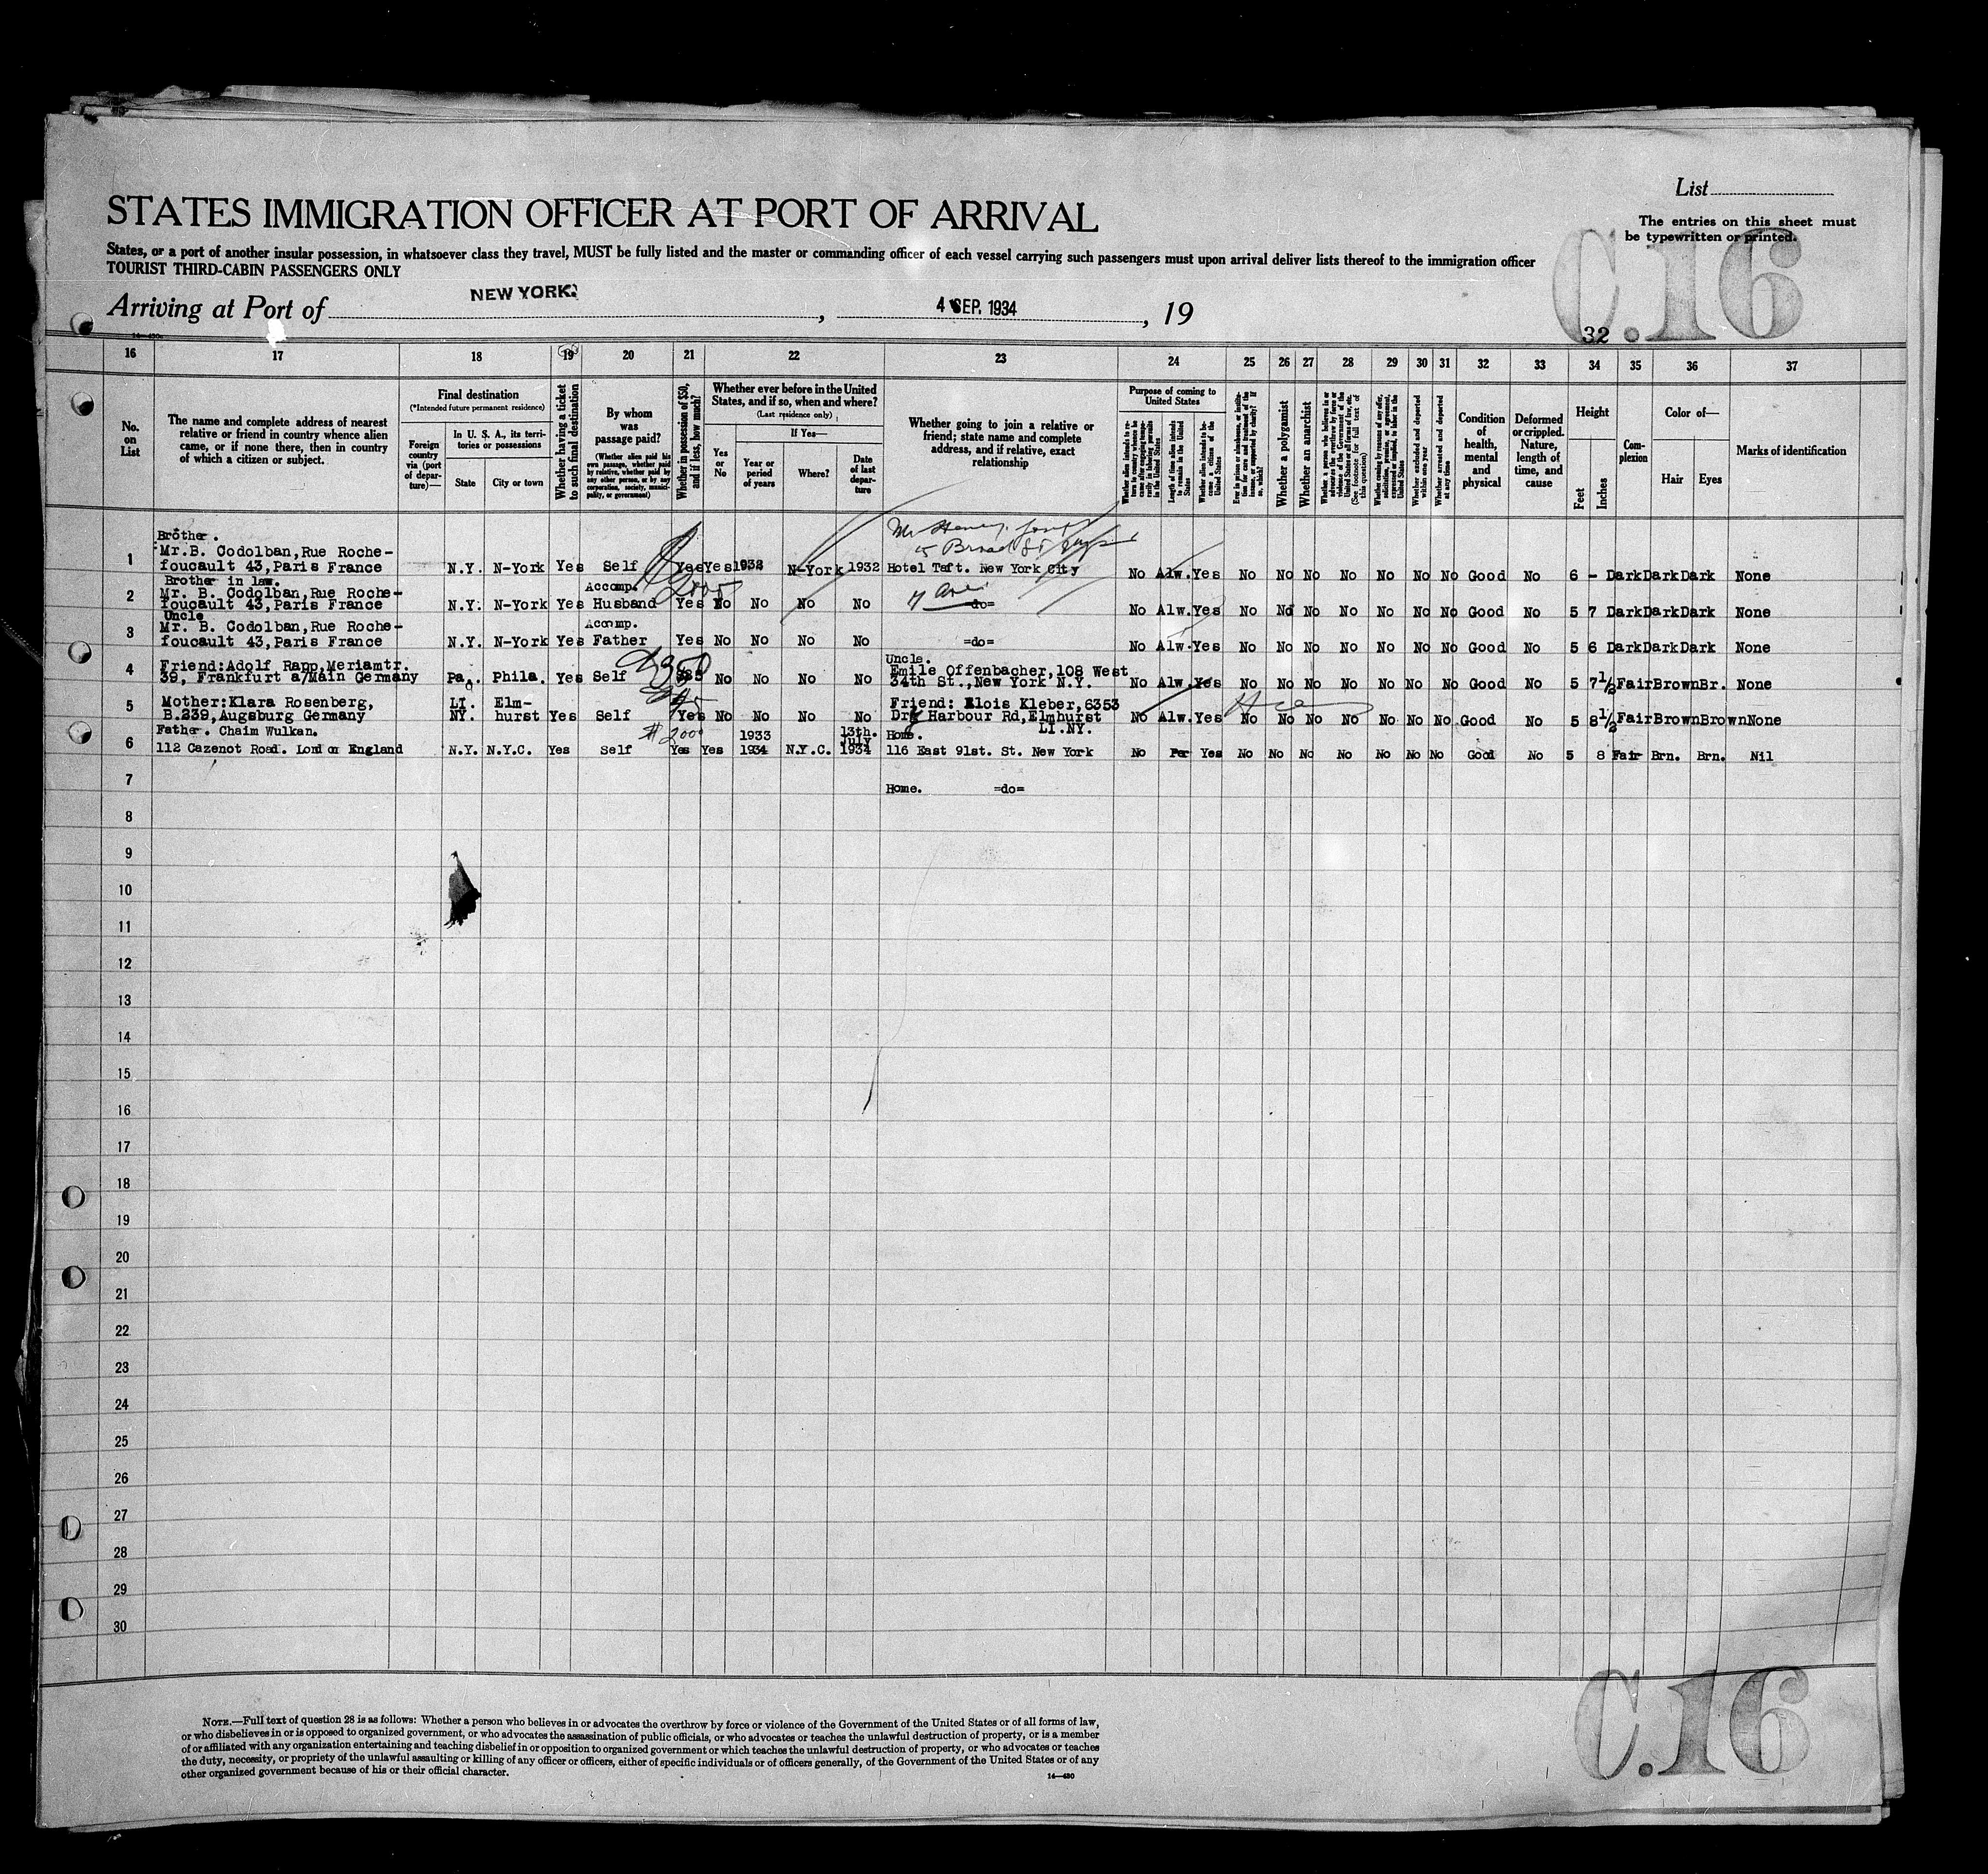 List
STATES IMMIGRATION OFFICER AT PORT OF ARRIVAL
The entries on this sheet must
be typewritten or printed.
States, or a port of another insular possession, in whatsoever class they travel, MUST be fully listed and the master or commanding officer of each vessel carrying such passengers must upon arrival deliver lists thereof to the immigration officer
TOURIST THIRD-CABIN PASSENGERS ONLY
C.16
Arriving at Port of NEW YORK. , 4 SEP. 1934 , 19
32
14—430
16 17 18 19 20 21 22 23 24 25 26 27 28 29 30 31 32 33 34 35 36 37
No. on List
The name and complete address of nearest
relative or friend in country whence alien
came, or if none there, then in country
of which a citizen or subject.
Final destination
(*Intended future permanent residence)
Foreign country via (port of departure)—
In U. S. A., its territories or possessions
State
City or town
Whether having a ticket to such final destination
By whom was passage paid?
(Whether alien paid his own passage, whether paid by relative, whether paid by any other person, or by any corporation, society, municipality, or government)
Whether in possession of $50, and if less, how much?
Whether ever before in the United States, and if so, when and where?
(Last residence only)
Yes or No
If Yes—
Year or period of years
Where?
Date of last departure
Whether going to join a relative or
friend; state name and complete
address, and if relative, exact
relationship
Purpose of coming to United States
Whether alien intends to return to country whence he came after engaging temporarily in laboring pursuits in the United States
Length of time alien intends to remain in the United States
Whether alien intends to become a citizen of the United States
Ever in prison or almshouse, or institution for care and treatment of the insane, or supported by charity? If so, which?
Whether a polygamist
Whether an anarchist
Whether a person who believes in or advocates the overthrow by force or violence of the Government of the United States or all forms of law, etc. (See footnote for full text of this question)
Whether coming by reason of any offer, solicitation, promise, or agreement, expressed or implied, to labor in the United States
Whether excluded and deported within one year
Whether arrested and deported at any time
Condition of health, mental and physical
Deformed or crippled. Nature, length of time, and cause
Height
Feet
Inches
Complexion
Color of—
Hair
Eyes
Marks of identification
Brother.
Mr.B. Codolban,Rue Roche-
1 foucault 43,Paris France N.Y. N-York Yes Self Yes Yes 1932 N-York 1932 Hotel Taft. New York City No Alw. Yes No No No No No No No Good No 6 - Dark Dark Dark None
Mr Henry
15 Broad St
2000
Brother in law.
Mr. B. Codolban,Rue Roche- Accomp.
2 foucault 43,Paris France N.Y. N-York Yes Husband Yes No No No No =do= No Alw. Yes No No No No No No No Good No 5 7 Dark Dark Dark None
7 Ave
Uncle
Mr. B. Codolban,Rue Roche- Accomp.
3 foucault 43,Paris France N.Y. N-York Yes Father Yes No No No No =do= No Alw. Yes No No No No No No No Good No 5 6 Dark Dark Dark None
Uncle.
4 Friend:Adolf Rapp,Meriamtr. Emile Offenbacher,108 West
39, Frankfurt a/Main Germany Pa. Phila. Yes Self No No No No 34th St.,New York N.Y. No Alw. Yes No No No No No No No Good No 5 7½ Fair Brown Br. None
5 Mother:Klara Rosenberg, LI. Elm- Friend: Alois Kleber,6353
B.239,Augsburg Germany NY. hurst Yes Self Yes No No No No Dry Harbour Rd,Elmhurst No Alw. Yes No No No No No No No Good No 5 8½ Fair Brown Brown None
LI.NY.
Father. Chaim Wulkan. # 2000 1933 13th. July Home.
6 112 Cazenot Road. London England N.Y. N.Y.C. Yes Self Yes Yes 1934 N.Y.C. 1934 116 East 91st. St. New York No Per Yes No No No No No No No Good No 5 8 Fair Brn. Brn. Nil
7 Home. =do=
8
9
10
11
12
13
14
15
16
17
18
19
20
21
22
23
24
25
26
27
28
29
30
NOTE.—Full text of question 28 is as follows: Whether a person who believes in or advocates the overthrow by force or violence of the Government of the United States or of all forms of law,
or who disbelieves in or is opposed to organized government, or who advocates the assassination of public officials, or who advocates or teaches the unlawful destruction of property, or is a member
of or affiliated with any organization entertaining and teaching disbelief in or opposition to organized government or which teaches the unlawful destruction of property, or who advocates or teaches
the duty, necessity, or propriety of the unlawful assaulting or killing of any officer or officers, either of specific individuals or of officers generally, of the Government of the United States or of any
other organized government because of his or their official character.
14—430
C.16